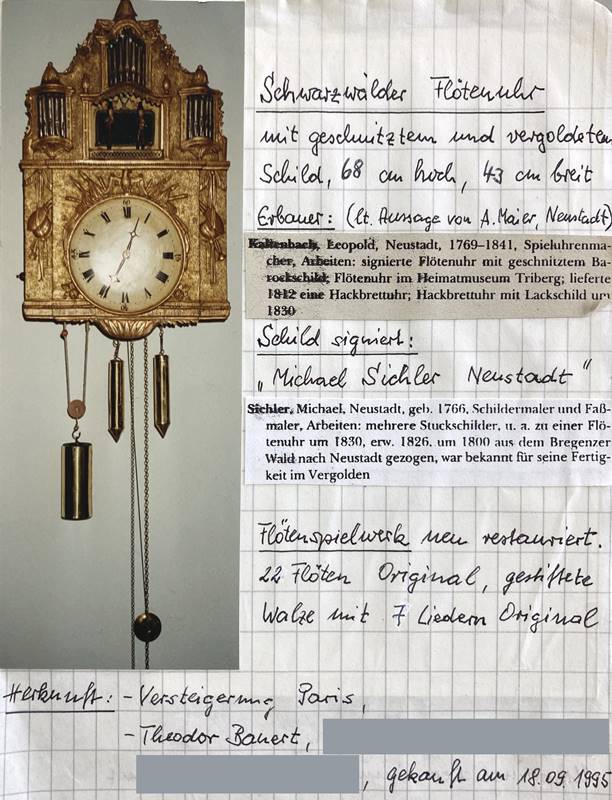 Schwarzwälder Flötenuhr
mit geschnitztem und vergoldetem
Schild, 68 cm hoch, 43 cm breit
Erbauer: (lt. Aussage von A. Maier, Neustadt)
Kaltenbach, Leopold, Neustadt, 1769–1841, Spieluhrenma-
cher, Arbeiten: signierte Flötenuhr mit geschnitztem Ba-
rockschild; Flötenuhr im Heimatmuseum Triberg; lieferte
1812 eine Hackbrettuhr; Hackbrettuhr mit Lackschild um
1830
Schild signiert:
„Michael Sichler Neustadt"
Sichler, Michael, Neustadt, geb. 1766, Schildermaler und Faß-
maler, Arbeiten: mehrere Stuckschilder, u. a. zu einer Flö-
tenuhr um 1830, erw. 1826, um 1800 aus dem Bregenzer
Wald nach Neustadt gezogen, war bekannt für seine Fertig-
keit im Vergolden
Flötenspielwerk neu restauriert.
22 Flöten Original, gestiftete
Walze mit 7 Liedern Original
Herkunft: - Versteigerung Paris,
- Theodor Banert,
, gekauft am 18.09.1995